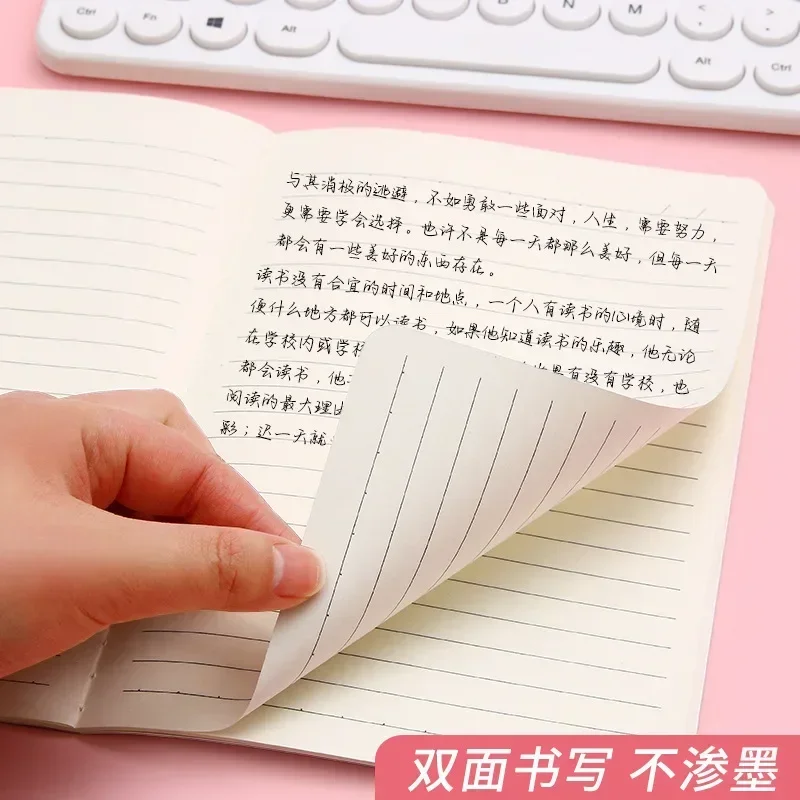 Ctrl
Fn
Alt
B
N
M
<
,
>
.
Alt
Ctrl
与其消极的逃避，不如勇敢一些面对，人生，需要努力，
更需要学会选择。也许不是每一天都那么美好，但每一天
都会有一些美好的东西存在。
读书没有合宜的时间和地点，一个人有读书的心境时，随
便什么地方都可以读书，如果他知道读书的乐趣，他无论
在学校内或学校 果有没有学校，也
都会读书，他
阅读的最大理由
影；迟一天就
双面书写 不渗墨